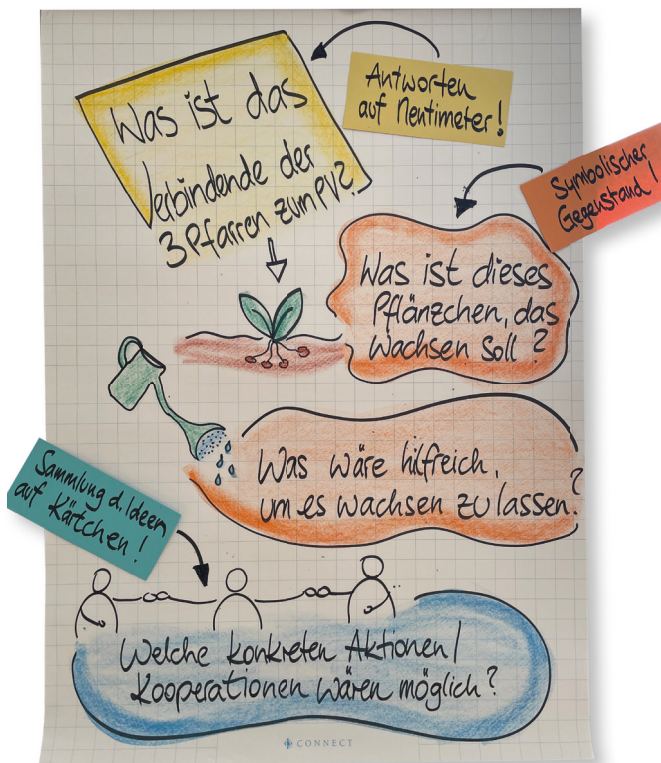 Was ist das
Verbindende der
3 Pfarren zum PV?
Antworten
auf Mentimeter!
Symbolischer
Gegenstand!
Was ist dieses
Pflänzchen, das
wachsen soll?
Was wäre hilfreich,
um es wachsen zu lassen?
Sammlung d. Ideen
auf Kärtchen!
Welche konkreten Aktionen/
Kooperationen wären möglich?
CONNECT